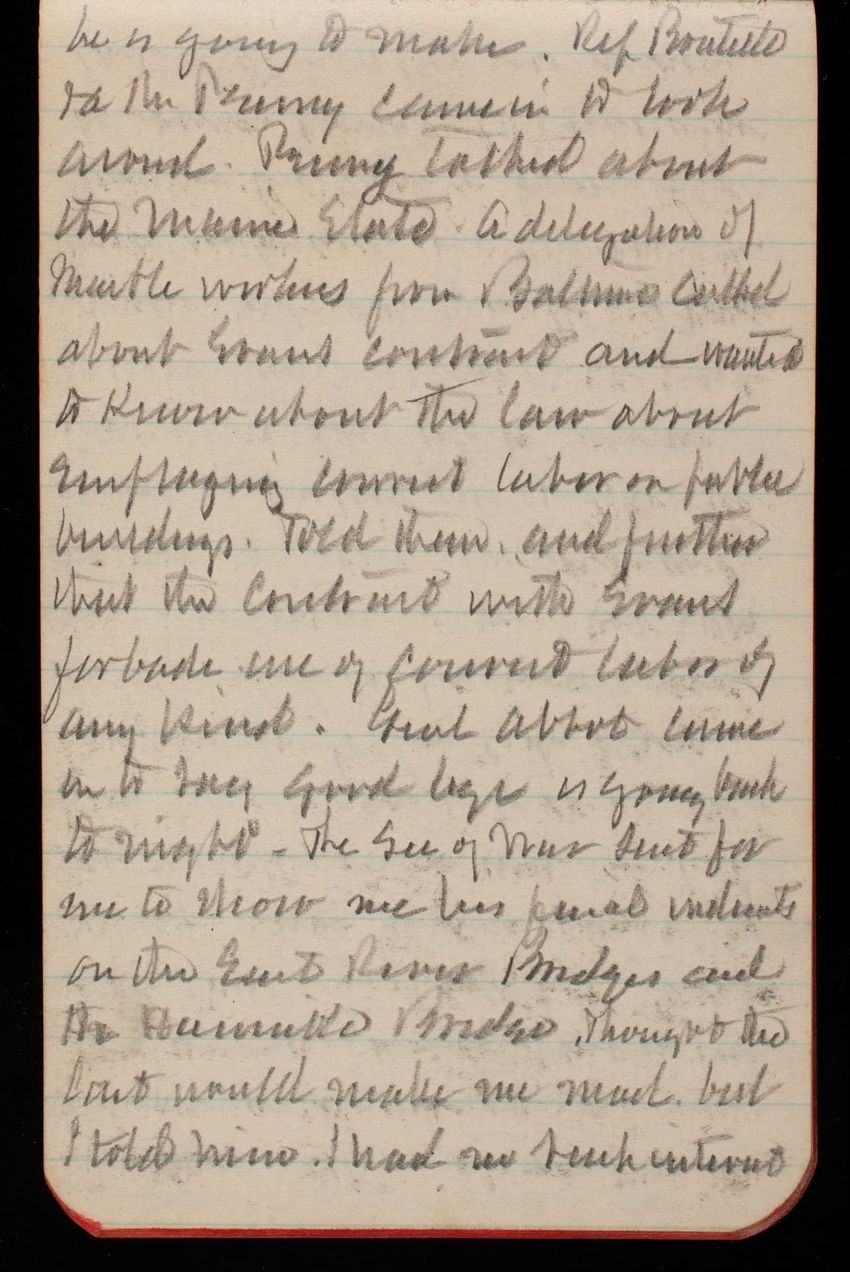 he is going to make. Rep Boutelle
came in to look
around. talked about
the Maine State. A delegation of
Marble workers from Baltimore called
about Evans contract and wanted
to Know about the law about
Employing convict labor on public
buildings. Told them, and further
that the Contract with Evans
forbade use of convict labor of
any kind. Genl Abbot came
in to say Good bye is going back
to night - The Sec of War sent for
me to show me his
on the East River Bridges and
the Bridge. Thought the
last would make me mad. but
I told him. I had no such interest